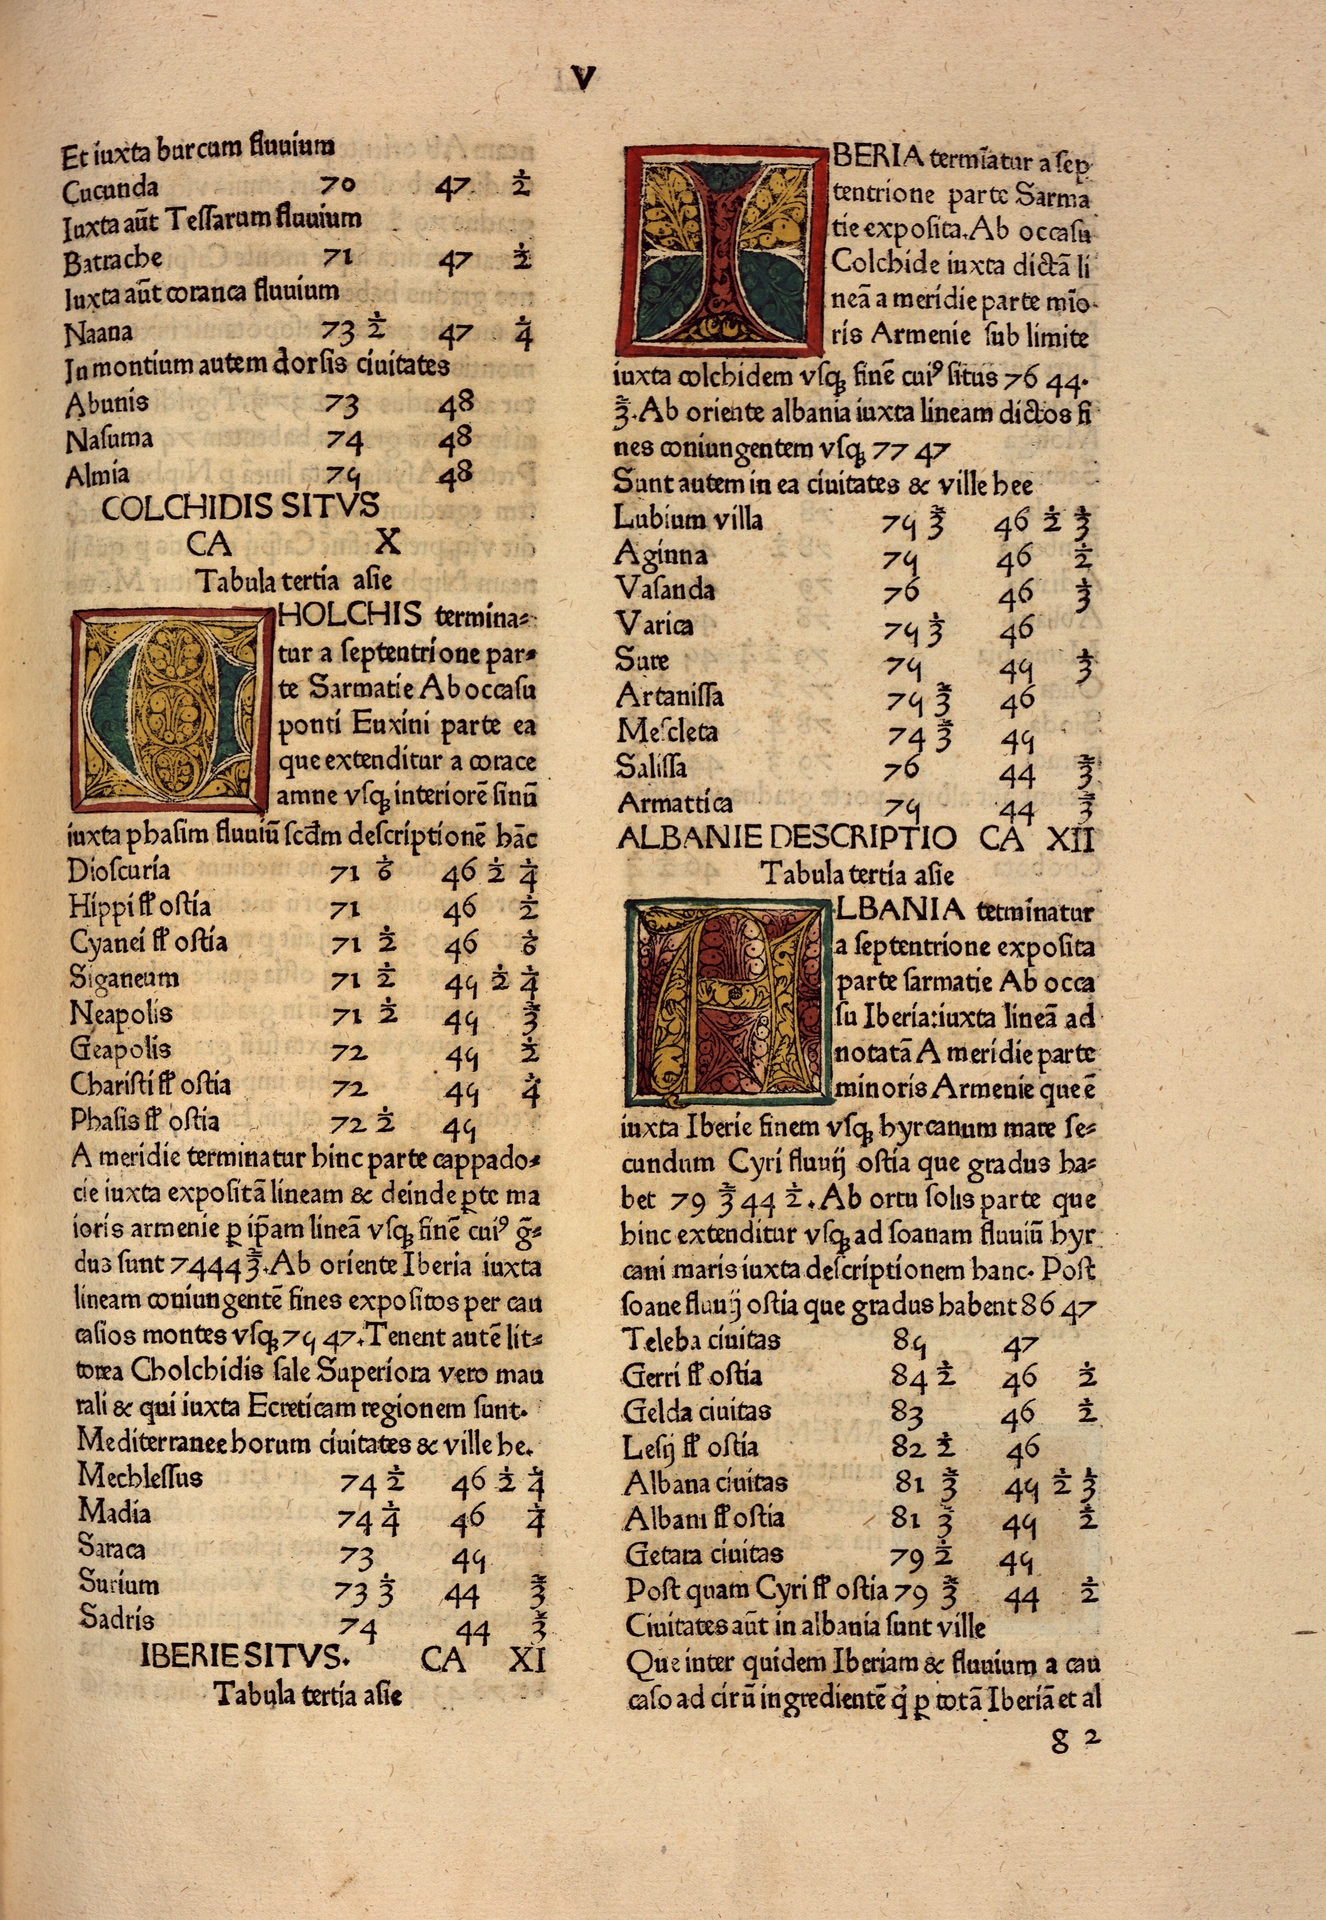 V
Et iuxta burcum fluuium
Cucunda 70 47 ½
Iuxta aūt Tessarum fluuium
Batrache 71 47 ½
Iuxta aūt coranca fluuium
Naana 73 ½ 47 ¼
In montium autem dorsis ciuitates
Abunis 73 48
Nasuma 74 48
Almia 75 48
COLCHIDIS SITVS
CA X
Tabula tertia asie
CHOLCHIS termina-
tur a septentrione par-
te Sarmatie Ab occasu
ponti Euxini parte ea
que extenditur a corace
amne vsqꝫ interiorē sinū
iuxta phasim fluuiū scd̄m descriptionē hāc
Dioscuria 71 ⅙ 46 ½ ¼
Hippi fl̄ ostia 71 46 ½
Cyanei fl̄ ostia 71 ½ 46 ⅙
Siganeum 71 ½ 45 ½ ¼
Neapolis 71 ½ 45 ⅔
Geapolis 72 45 ½
Charisti fl̄ ostia 72 45 ¼
Phasis fl̄ ostia 72 ½ 45
A meridie terminatur hinc parte cappado-
cie iuxta expositā lineam & deinde ꝑte ma
ioris armenie ꝑ ip̄am lineā vsqꝫ finē cuiꝰ ḡ-
dus sunt 74 44 ⅔. Ab oriente Iberia iuxta
lineam coniungentē fines expositos per cau
casios montes vsqꝫ 75 47. Tenent autē lit-
torea Cholchidis sale Superiora vero mau
rali & qui iuxta Ecreticam regionem sunt.
Mediterranee horum ciuitates & ville he.
Mechlessus 74 ½ 46 ½ ¼
Madia 74 ¼ 46 ¼
Saraca 73 45
Surium 73 ⅓ 44 ⅔
Sadris 74 44 ⅔
IBERIE SITVS. CA XI
Tabula tertia asie
IBERIA termīatur a sep
tentrione parte Sarma
tie exposita. Ab occasu
Colchide iuxta dictā li
neā a meridie parte mīo-
ris Armenie sub limite
iuxta colchidem vsqꝫ finē cuiꝰ situs 76 44.
⅔. Ab oriente albania iuxta lineam dictos fi
nes coniungentem vsqꝫ 77 47
Sunt autem in ea ciuitates & ville hee
Lubium villa 75 ⅔ 46 ½ ⅓
Aginna 75 46 ½
Vasanda 76 46 ⅓
Varica 75 ⅓ 46
Sure 75 45 ⅓
Artanissa 75 ⅔ 46
Mescleta 74 ⅔ 45
Salissa 76 44 ⅔
Armattica 75 44 ⅔
ALBANIE DESCRIPTIO CA XII
Tabula tertia asie
ALBANIA terminatur
a septentrione exposita
parte sarmatie Ab occa
su Iberia: iuxta lineā ad
notatā A meridie parte
minoris Armenie que ē
iuxta Iberie finem vsqꝫ hyrcanum mare se-
cundum Cyri fluuij ostia que gradus ha-
bet 79 ⅔ 44 ½. Ab ortu solis parte que
hinc extenditur vsqꝫ ad soanam fluuiū hyr
cani maris iuxta descriptionem hanc. Post
soane fluuij ostia que gradus habent 86 47
Teleba ciuitas 85 47
Gerri fl̄ ostia 84 ½ 46 ½
Gelda ciuitas 83 46 ½
Lesij fl̄ ostia 82 ½ 46
Albana ciuitas 81 ⅔ 45 ½ ⅓
Albani fl̄ ostia 81 ⅔ 45 ½
Getara ciuitas 79 ½ 45
Post quam Cyri fl̄ ostia 79 ⅔ 44 ½
Ciuitates aūt in albania sunt ville
Que inter quidem Iberiam & fluuium a cau
caso ad cirū ingredientē qͥ ꝑ totā Iberiā et al
g 2